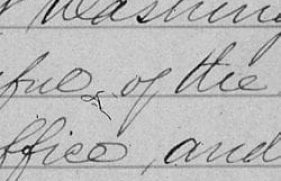 Washing
ful of the
office, and